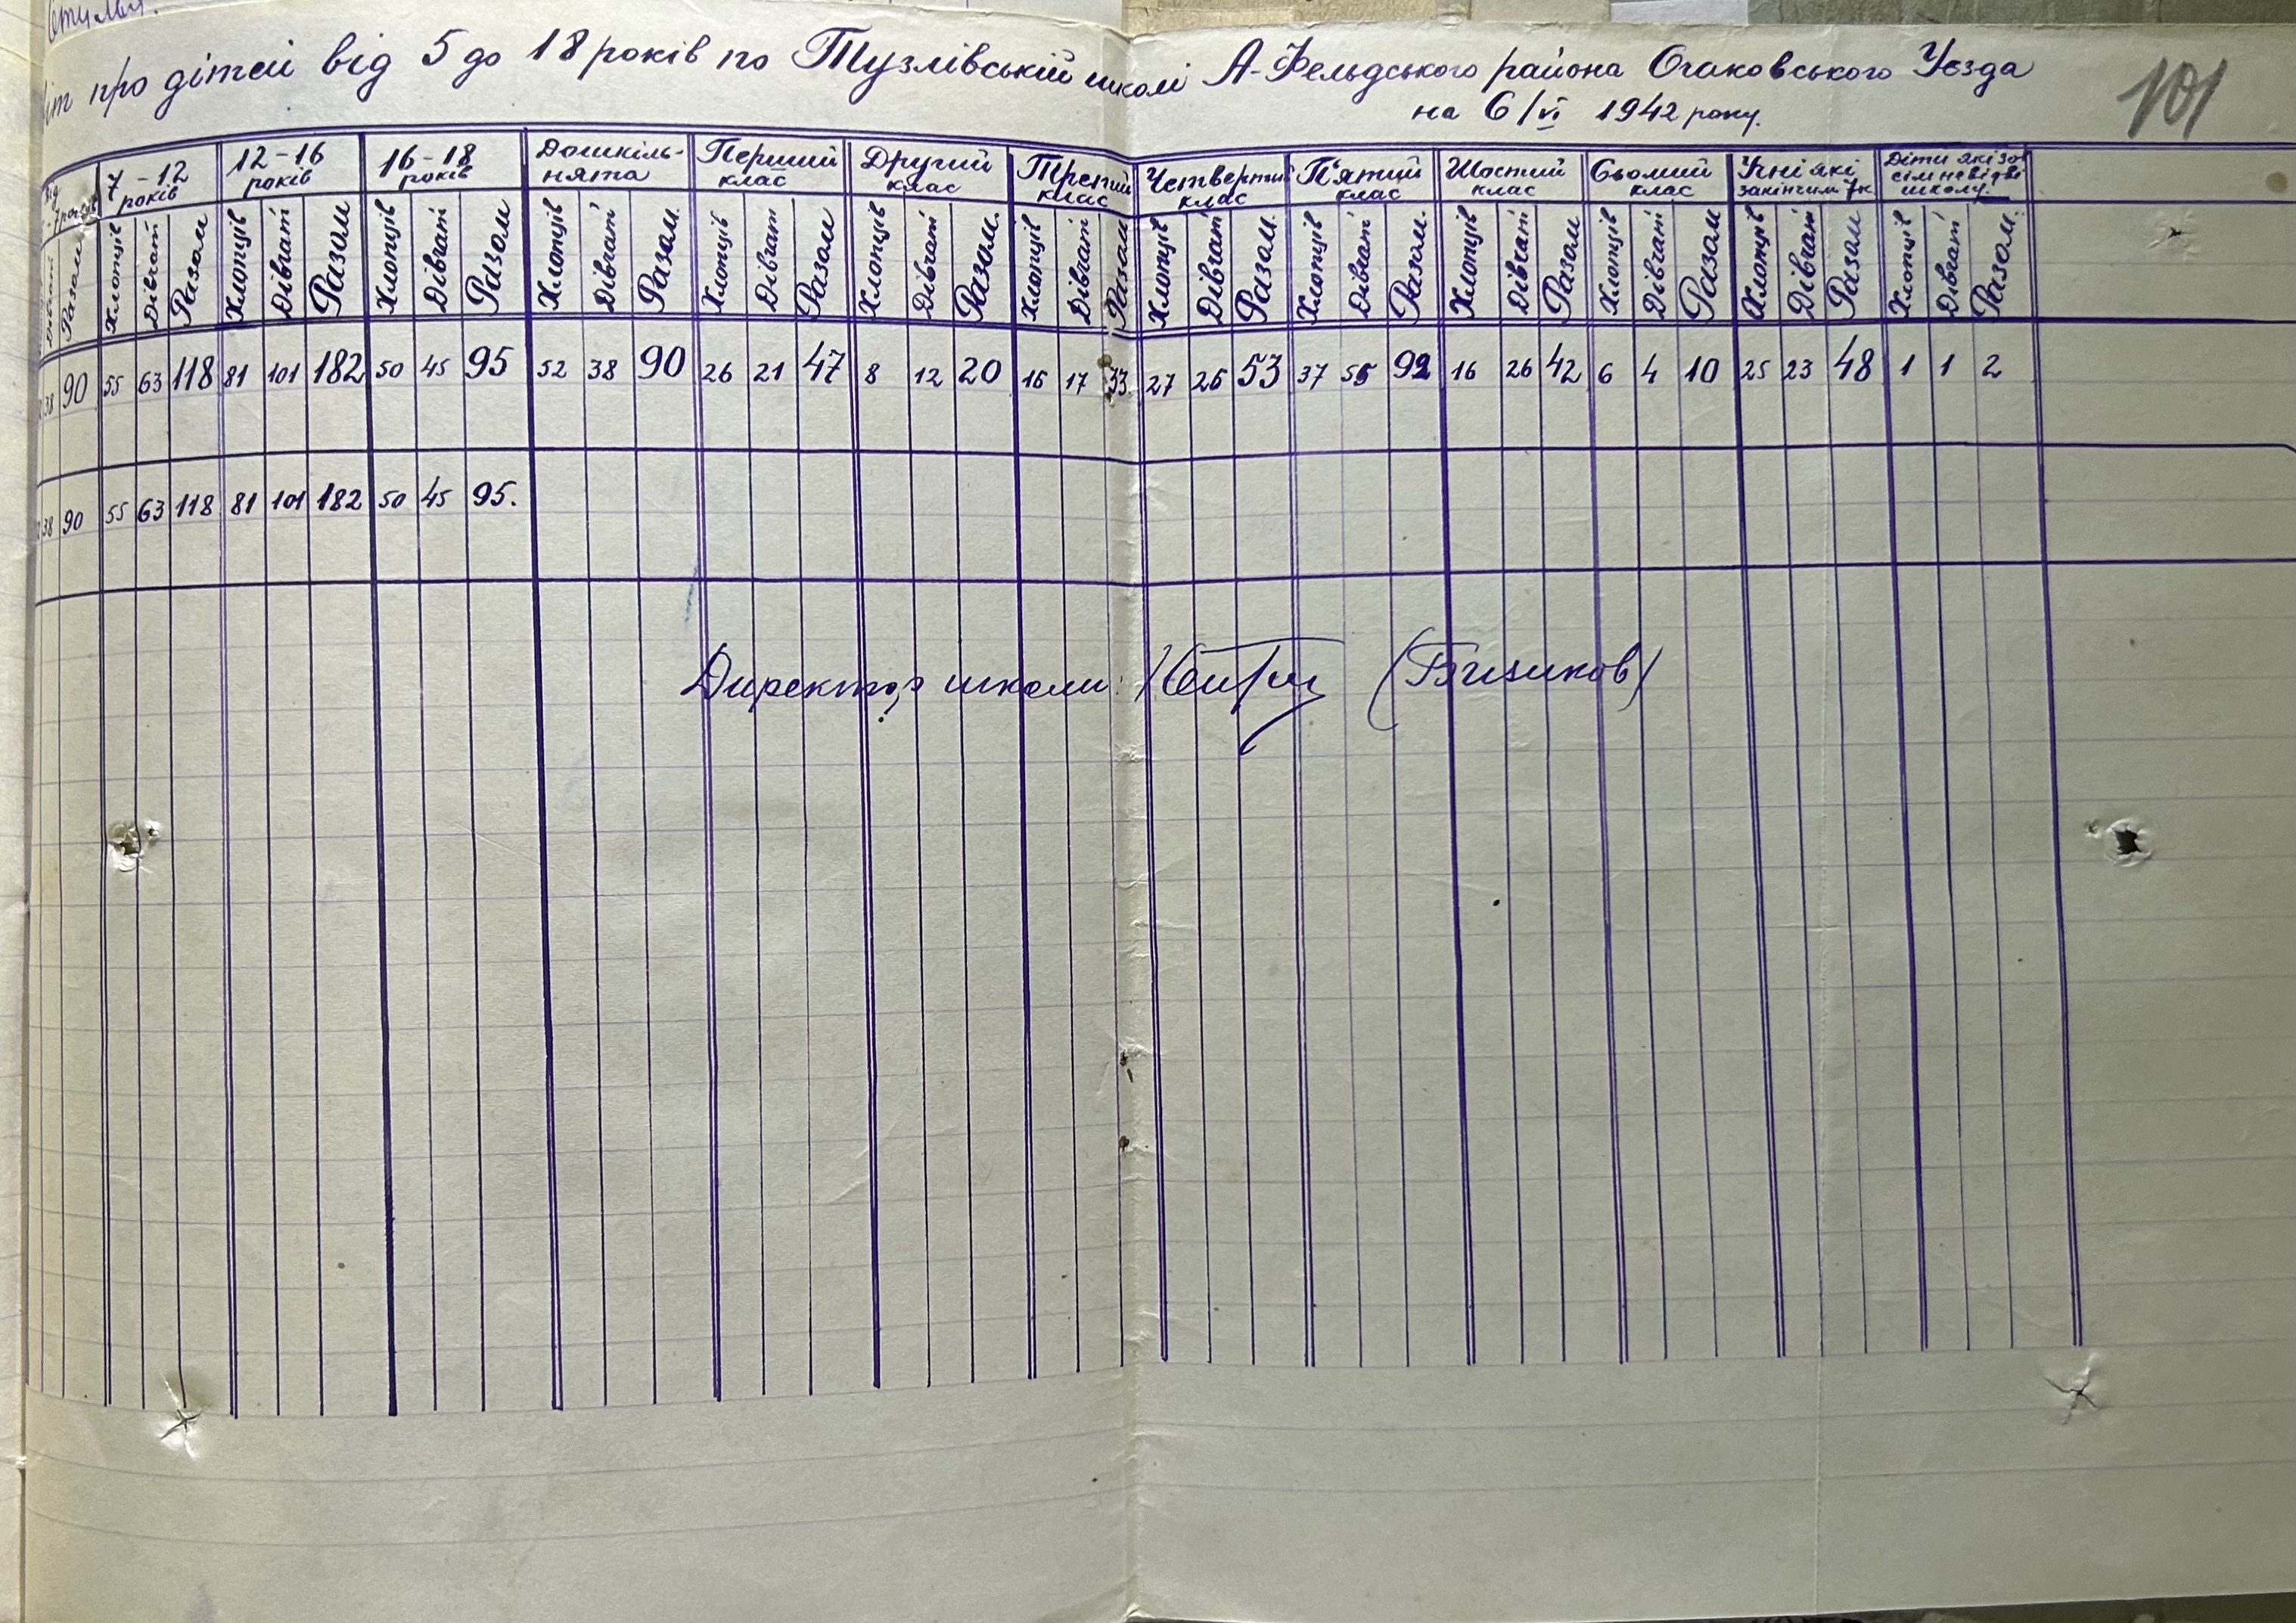 про дітей від 5 до 18 років по Тузлівській школі А-Фельдського района Очаковського Уєзда
на 6/VI 1942 року.
101
7-12 років 12-16 років 16-18 років Дошкіль-нята Перший клас Другий клас Третий клас Четвертий клас П'ятий клас Шостий клас Сьомий клас Учні які закінчили 7 к Діти які зо сім не відві школу
Дівчат Разом Хлопців Дівчат Разом Хлопців Дівчат Разом Хлопців Дівчат Разом Хлопців Дівчат Разом Хлопців Дівчат Разом Хлопців Дівчат Разом. Хлопців Дівчат Разом Хлопців Дівчат Разом Хлопців Дівчат Разом. Хлопців Дівчат Разом Хлопців Дівчат Разом Хлопців Дівчат Разом Хлопців Дівчат Разом.
38 90 55 63 118 81 101 182 50 45 95 52 38 90 26 21 47 8 12 20 16 17 33 27 26 53 37 55 92 16 26 42 6 4 10 25 23 48 1 1 2
38 90 55 63 118 81 101 182 50 45 95.
Директор школи: